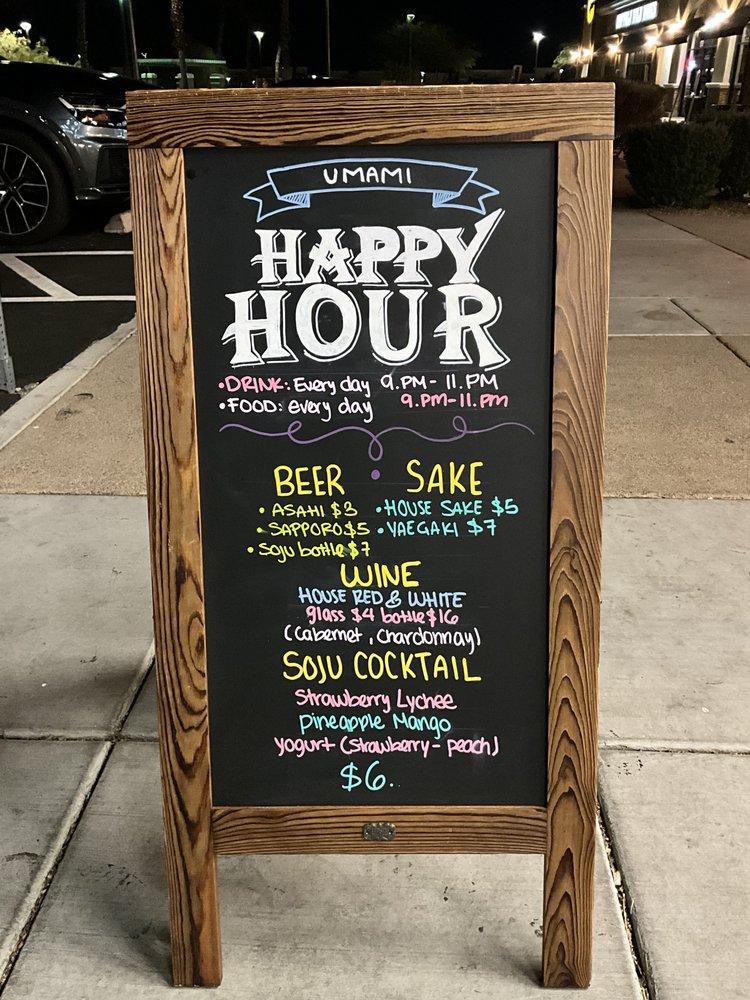 UMAMI
HAPPY
HOUR
•DRINK: Every day 9.PM - 11.PM
•FOOD: every day 9.PM-11.PM
BEER • SAKE
• ASAHI $3 •HOUSE SAKE $5
•SAPPORO $5 •YAEGAKI $7
• Soju bottle $7
WINE
HOUSE RED & WHITE
glass $4 bottle $16
(Cabernet, Chardonnay)
SOJU COCKTAIL
Strawberry Lychee
Pineapple Mango
Yogurt (Strawberry - peach)
$6.